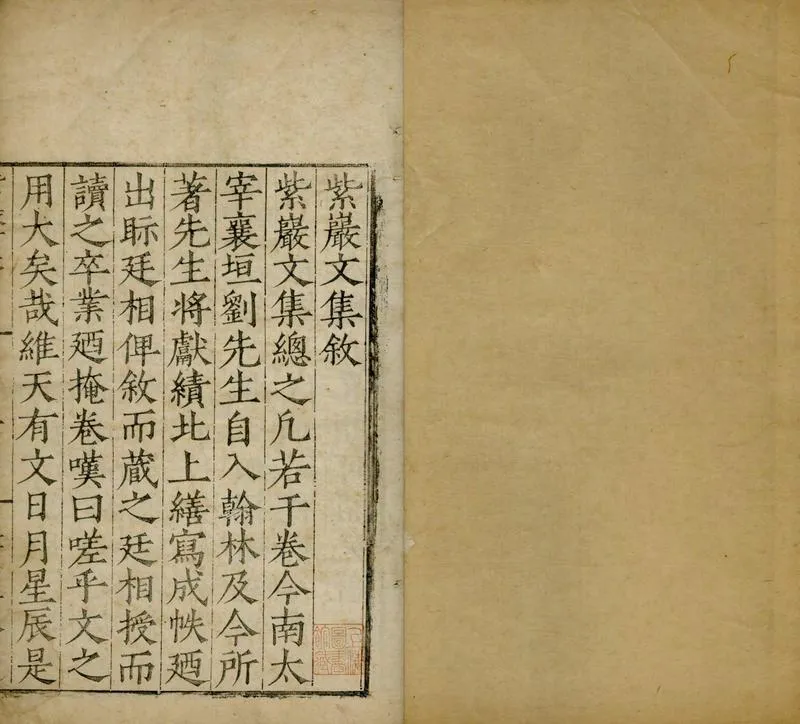 紫巖文集敘
紫巖文集總之凡若干卷今南太
宰襄垣劉先生自入翰林及今所
著先生將獻績北上繕寫成帙廼
出眎廷相俾敘而蔵之廷相授而
讀之卒業廼掩卷嘆曰嗟乎文之
用大矣哉維天有文日月星辰是